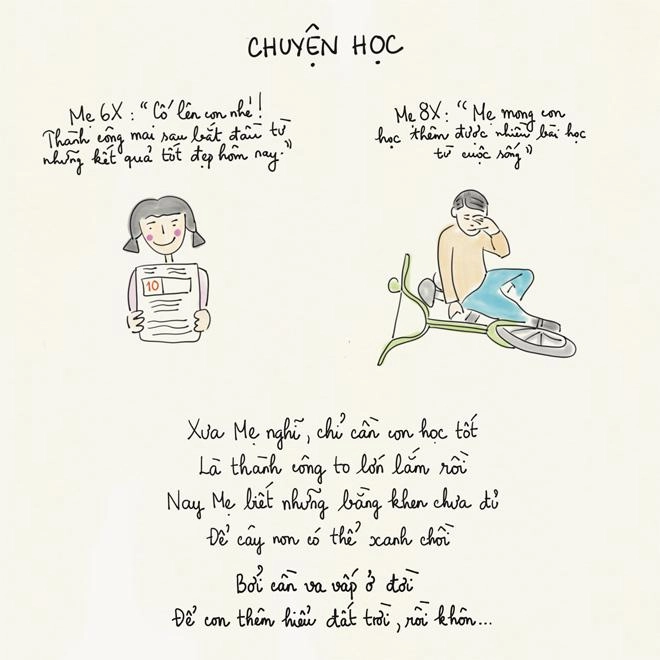 CHUYỆN HỌC
Mẹ 6X: "Cố lên con nhé!
Thành công mai sau bắt đầu từ
những kết quả tốt đẹp hôm nay."
Mẹ 8X: "Mẹ mong con
học thêm được nhiều bài học
từ cuộc sống"
10
Xưa Mẹ nghĩ, chỉ cần con học tốt
Là thành công to lớn lắm rồi
Nay Mẹ biết những bằng khen chưa đủ
Để cây non có thể xanh chồi
Bởi cần va vấp ở đời
Để con thêm hiểu đất trời, rồi khôn...